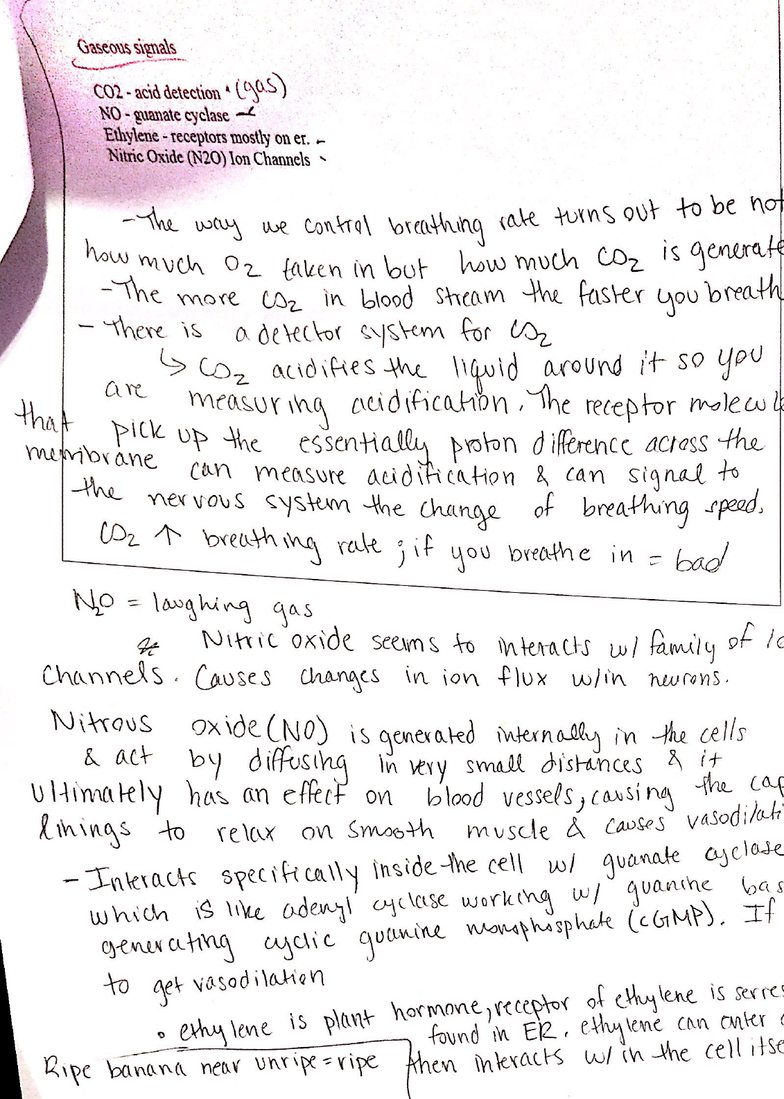 Gaseous signals
CO2 - acid detection • (gas)
NO - guanate cyclase -
Ethylene - receptors mostly on er. -
Nitric Oxide (N2O) Ion Channels -
- The way we control breathing rate turns out to be not
how much O2 taken in but how much CO2 is generate
- The more CO2 in blood stream the faster you breath
- There is a detector system for CO2
↳ CO2 acidifies the liquid around it so you
are measuring acidification. The receptor molecule
that pick up the essentially proton difference across the
membrane can measure acidification & can signal to
the nervous system the change of breathing speed.
CO2 ↑ breathing rate ; if you breathe in = bad
N2O = laughing gas
Nitric oxide seems to interacts w/ family of
Channels. Causes changes in ion flux w/in neurons.
Nitrous oxide (NO) is generated internally in the cells
& act by diffusing in very small distances & it
ultimately has an effect on blood vessels, causing the cap
linings to relax on smooth muscle & causes vasodilati
- Interacts specifically inside the cell w/ guanate cyclase
which is like adenyl cyclase working w/ guanine bas
generating cyclic guanine monophosphate (cGMP). If
to get vasodilation
• ethylene is plant hormone, receptor of ethylene is
found in ER. ethylene can enter
Ripe banana near unripe = ripe
then interacts w/in the cell itse